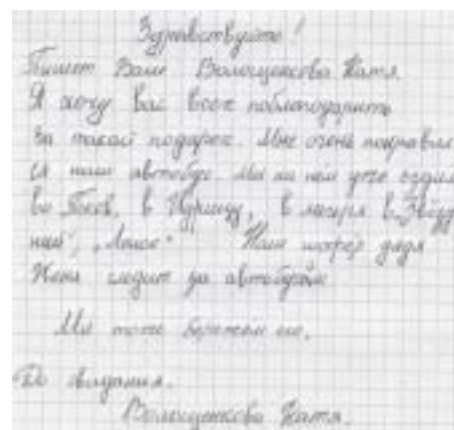 Здравствуйте!
Пишет Вам Волощенкова Катя.
Я хочу Вас всех поблагодарить
за такой подарок. Мне очень понравил
ся наш автобус. Мы на нём уже ездили
во Псков, в, в лагеря
Наш шофёр дядя
Женя следит за автобусом
Мы тоже бережём его.
До свидания.
Волощенкова Катя.